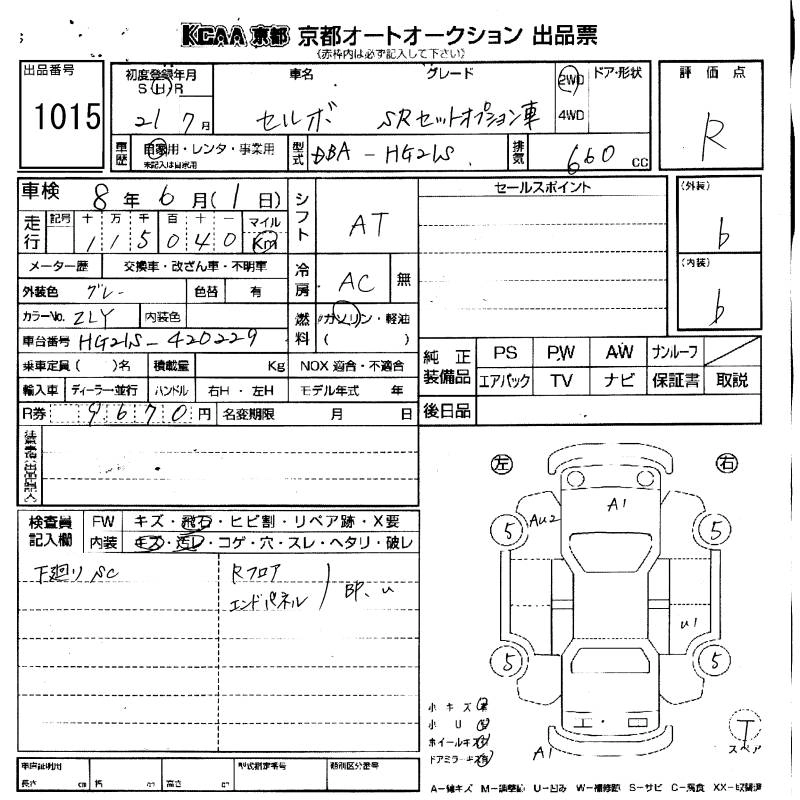 KCAA 京都 京都オートオークション 出品票
(赤枠内は必ず記入して下さい)
出品番号
1015
初度登録年月
S H R
21 7 月
車名
セルボ
グレード
SRセットオプション車
2WD
4WD
ドア・形状
評価点
R
車歴
自家用・レンタ・事業用
未記入は自家用
型式
DBA-HG21S
排気
660 CC
車検
8 年 6 月 ( 1 日)
走行
記号 十 万 千 百 十 一
1 1 5 0 4 0
マイル
Km
シフト
AT
セールスポイント
(外装)
b
(内装)
b
メーター歴
交換車・改ざん車・不明車
冷房
AC
無
外装色
グレー
色替
有
カラーNo.
ZLY
内装色
燃料
ガソリン・軽油
( )
車台番号
HG21S-420229
乗車定員 ( )名
積載量
Kg
NOX 適合・不適合
輸入車
ディーラー並行
ハンドル
右H・左H
モデル年式 年
R券
9670 円
名変期限 月 日
純正装備品
PS PW AW サンルーフ
エアバック TV ナビ 保証書 取説
後日品
検査員記入欄
FW
キズ・飛石・ヒビ割・リペア跡・X要
内装
キズ・汚レ・コゲ・穴・スレ・ヘタリ・破レ
下廻りSC
Rフロア
エンドパネル
BP、u
左
右
A1
AU2
5
5
U1
5
5
A1
小キズ
小U
ホイールキズ
ドアミラーキズ
T
スペア
車庫証明用
長さ cm 幅 cm 高さ cm
型式指定番号
類別区分番号
A-線キズ M-調整跡 U-凹み W-補修跡 S-サビ C-腐食 XX-取替済